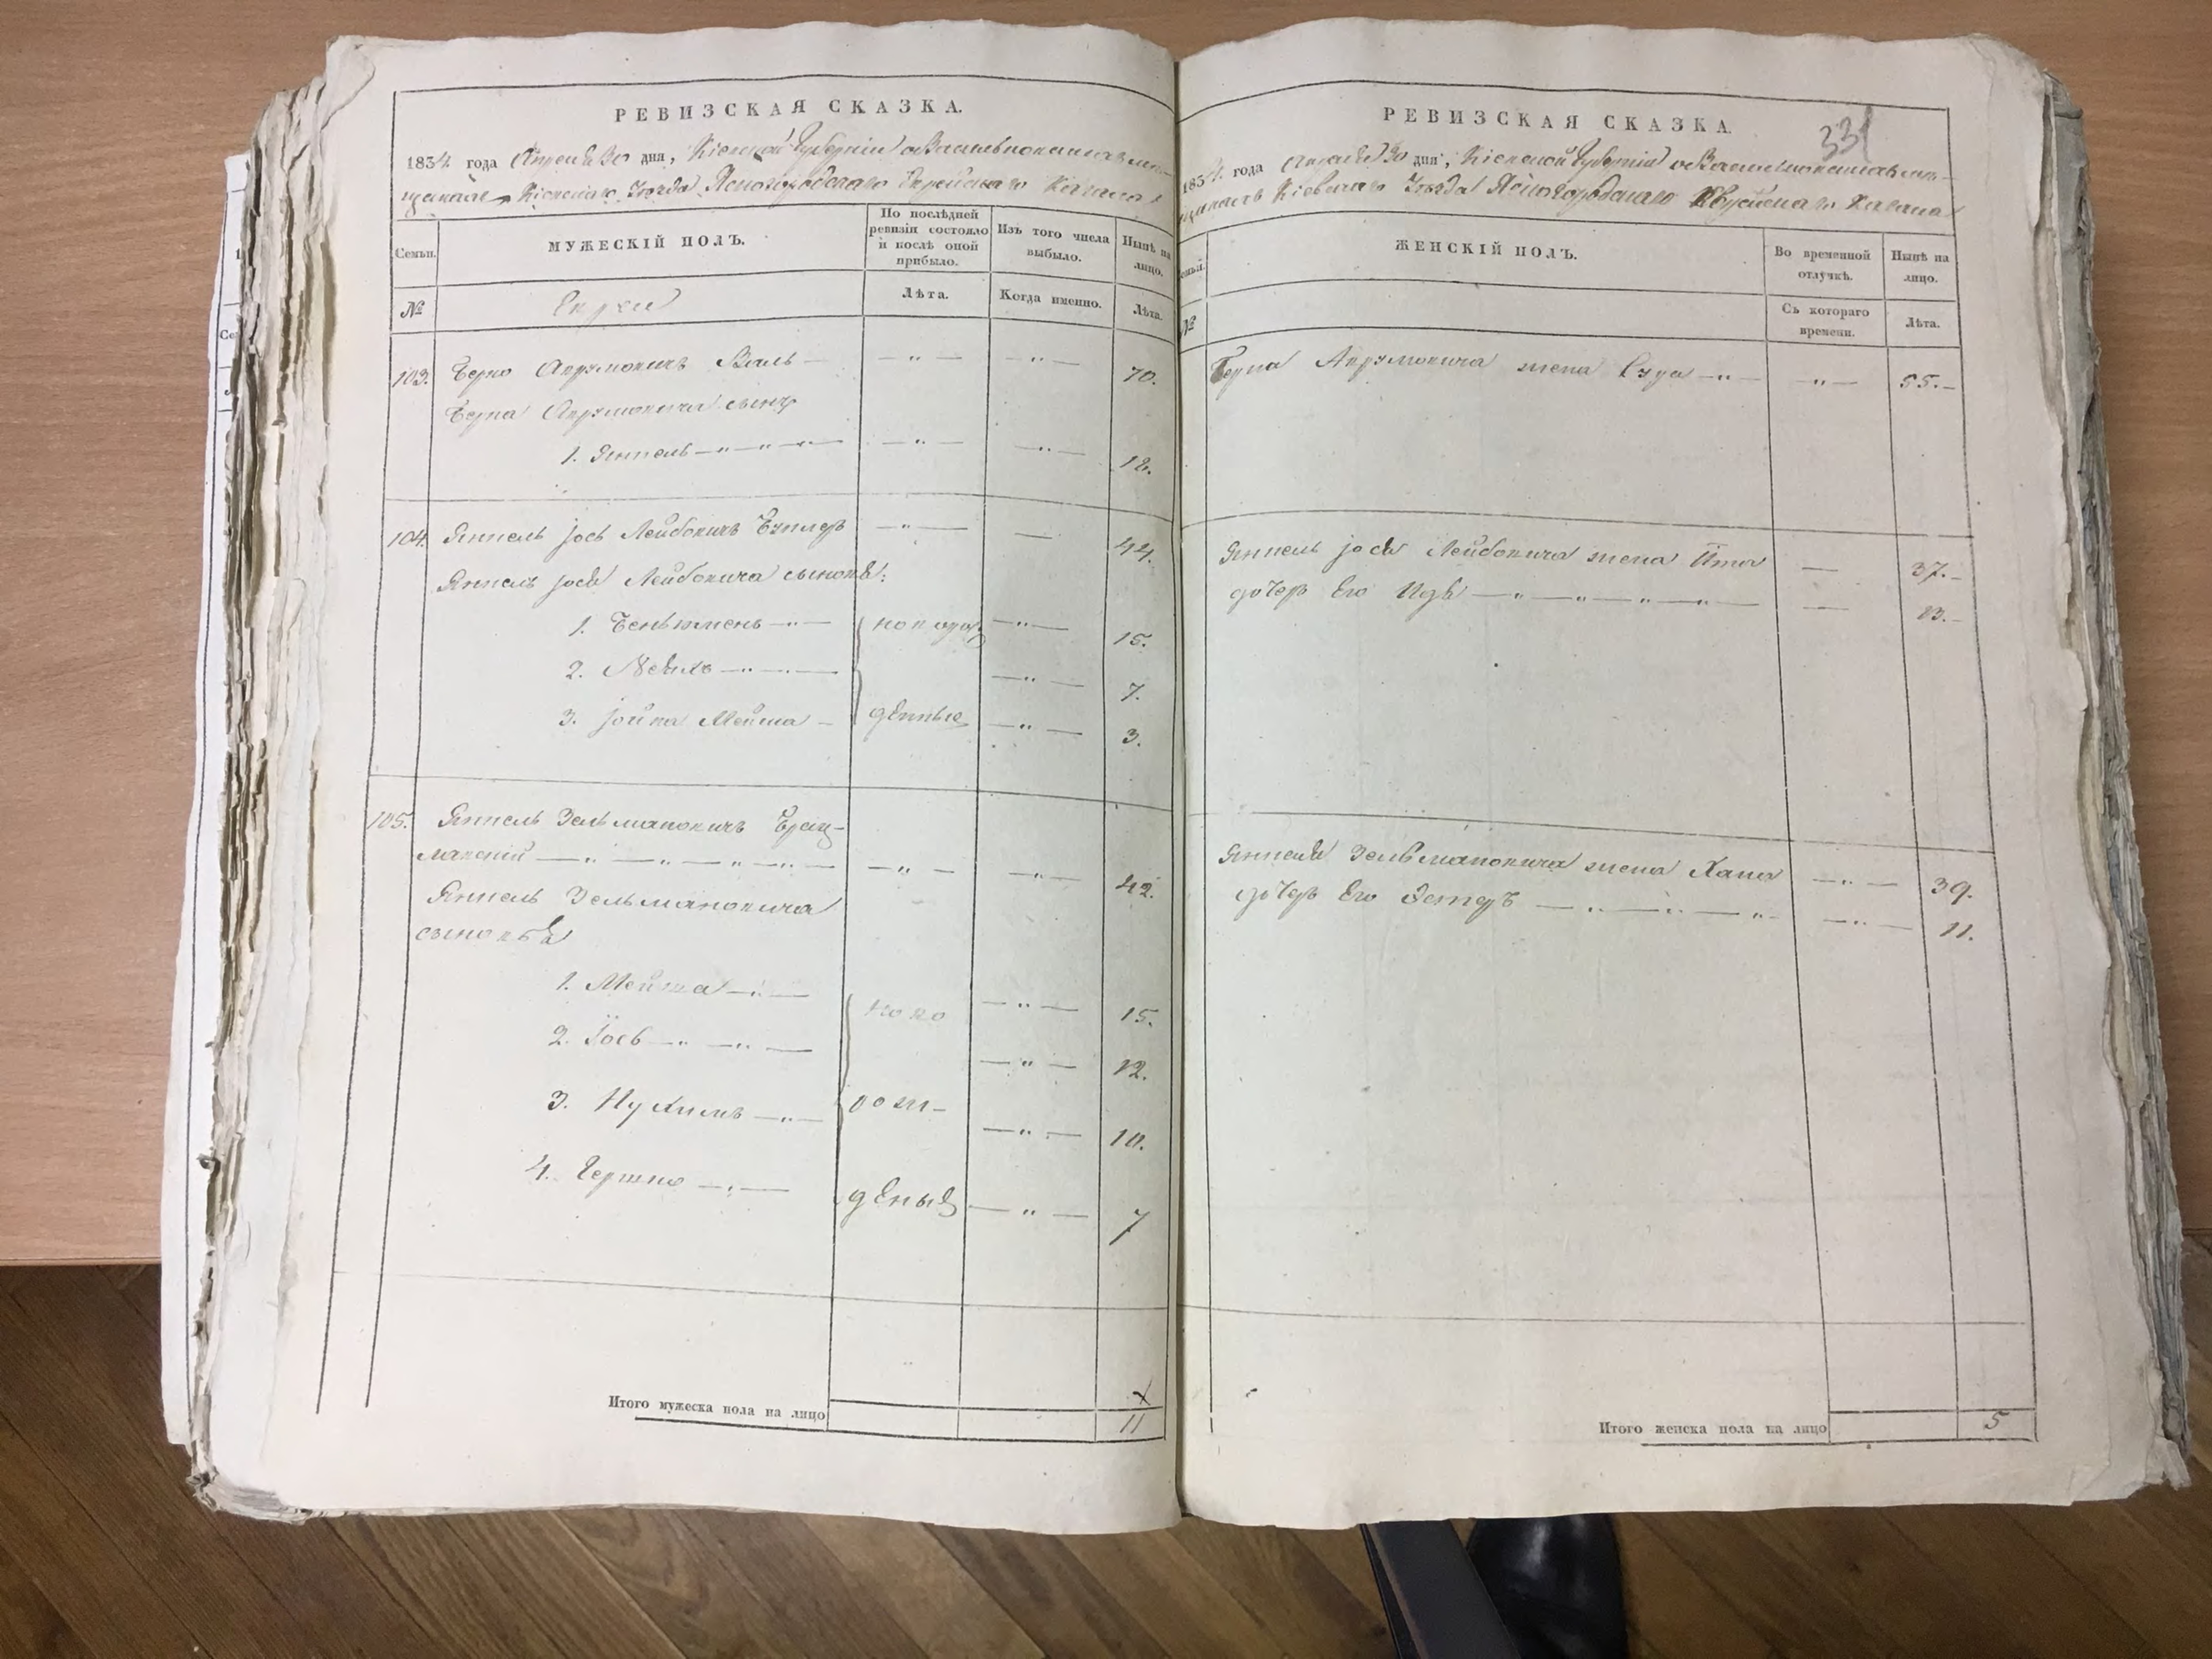 РЕВИЗСКАЯ СКАЗКА.
1834 года Апреля 30 дня, Кіевской Губерніи о Васильковскихъ мѣ-
щанахъ Кіевскаго Уезда Ясногородскаго Еврейскаго Кагала
Семьи.
МУЖЕСКІЙ ПОЛЪ.
По послѣдней ревизіи состояло и послѣ оной прибыло.
Изъ того числа выбыло.
Нынѣ на лицо.
№
Евреи
Лѣта.
Когда именно.
Лѣта.
103. Берко Аврумовичъ — " — — " — 70.
Берка Аврумовича сынъ
1. Янкель — " — " — " — — " — — " — 12.
104. Янкель Іось Лейбовичъ — " — — 44.
Янкель Іося Лейбовича сыновья:
1. Беньюмень — " — новорож — " — 15.
2. — " — " — — " — 7.
3. Іойна Мейша — денные — " — 3.
105. Янкель Зельмановичъ Брац-
лавскій — " — " — " — " — — " — — " — 42.
Янкель Зельмановича
сыновья
1. Мейша — " — ново — " — 15.
2. Іось — " — " — — " — 12.
3. Нухимъ — " — рож- — " — 10.
4. Гершко — " — деные — " — 7
Итого мужеска пола на лицо
11
РЕВИЗСКАЯ СКАЗКА.
331
1834. года Апреля 30 дня, Кіевской Губерніи о Васильковскихъ мѣ-
щанахъ Кіевскаго Уезда Ясногородскаго Еврейскаго Кагала
Семьи.
ЖЕНСКІЙ ПОЛЪ.
Во временной отлучкѣ.
Нынѣ на лицо.
№
Съ котораго времени.
Лѣта.
Берка Аврумовича жена Сура — " — — " — 55. —
Янкель Іося Лейбовича жена Ита — 37. —
дочерь Его Идя — " — " — " — " — — 13. —
Янкеля Зельмановича жена Хана — " — 39.
дочерь Его Эстеръ — " — " — " — — " — 11.
Итого женска пола на лицо
5